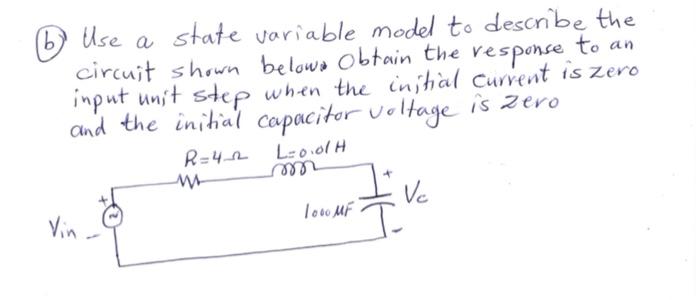 (b) Use a state variable model to describe the
circuit shown below. Obtain the response to an
input unit step when the initial current is zero
and the initial capacitor voltage is zero
R=4Ω L=0.01H
+ +
1000 MF Vc
Vin - -